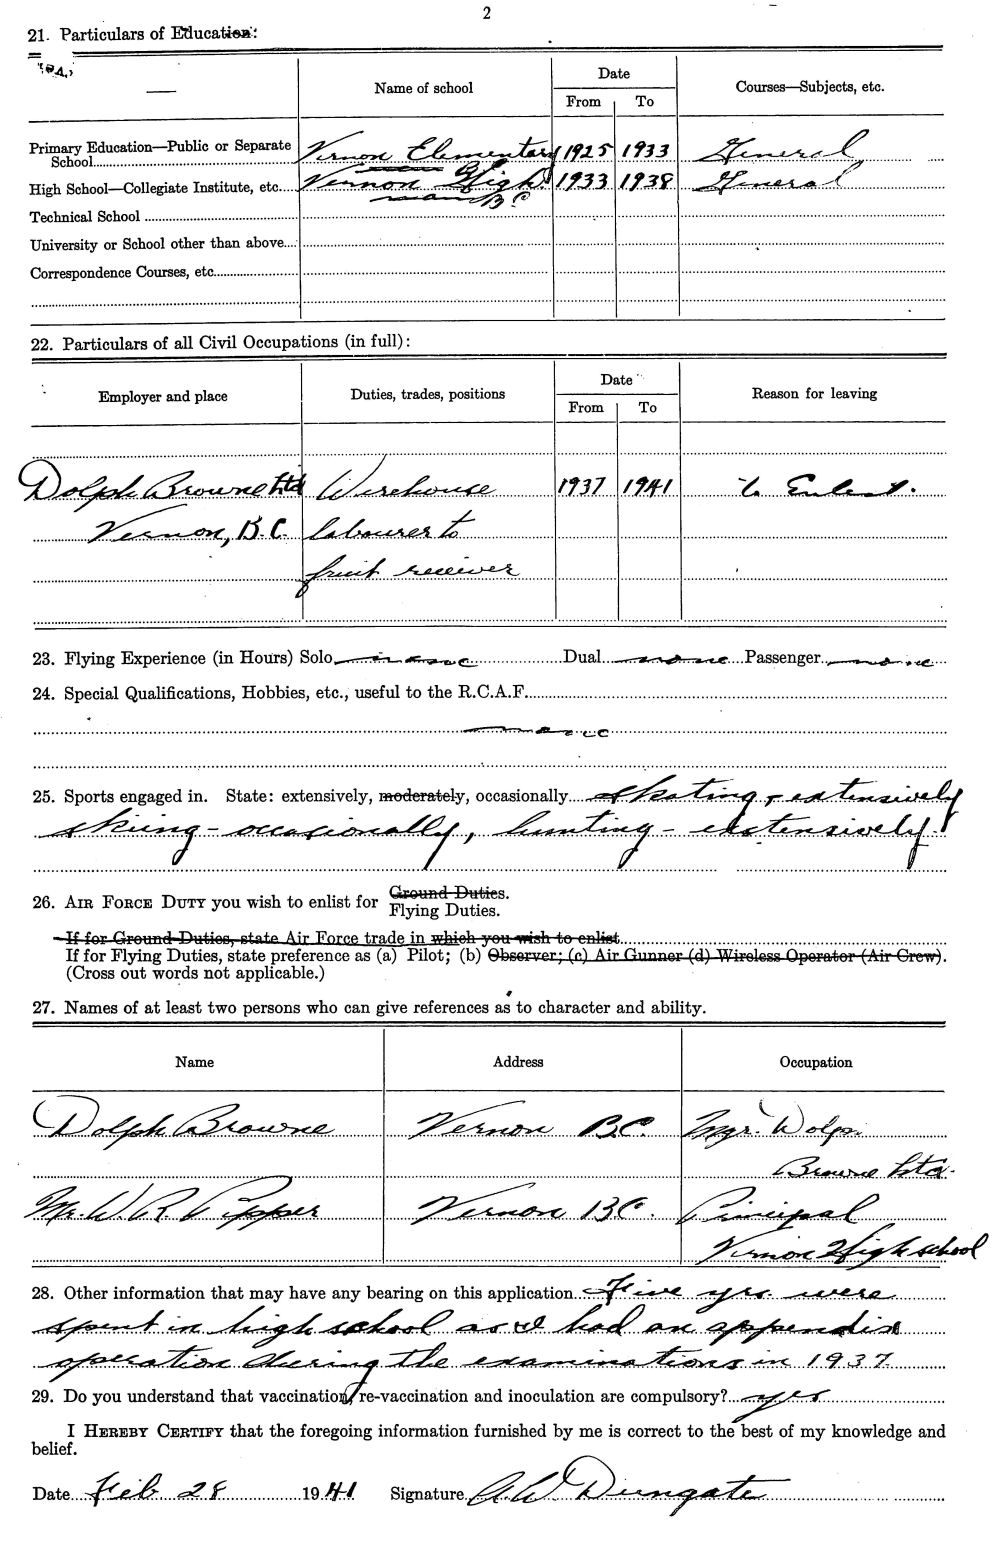 2
21. Particulars of Education:
Name of school
Date
From To
Courses—Subjects, etc.
Primary Education—Public or Separate
School Vernon Elementary 1925 1933 General
High School—Collegiate Institute, etc. Vernon High 1933 1938 General
B C
Technical School
University or School other than above
Correspondence Courses, etc.
22. Particulars of all Civil Occupations (in full):
Employer and place
Duties, trades, positions
Date
From To
Reason for leaving
Dolph Browne Ltd Wirehouse 1937 1941 to Enlist.
Vernon, B.C. labourer to
fruit receiver
23. Flying Experience (in Hours) Solo none Dual none Passenger none
24. Special Qualifications, Hobbies, etc., useful to the R.C.A.F.
none
25. Sports engaged in. State: extensively, moderately, occasionally skating - extensively
skiing - occasionally, hunting - extensively.
26. AIR FORCE DUTY you wish to enlist for Ground Duties.
Flying Duties.
If for Ground Duties, state Air Force trade in which you wish to enlist
If for Flying Duties, state preference as (a) Pilot; (b) Observer; (c) Air Gunner (d) Wireless Operator (Air Crew).
(Cross out words not applicable.)
27. Names of at least two persons who can give references as to character and ability.
Name Address Occupation
Dolph Browne Vernon B.C. Mgr. Dolph
Browne Ltd.
Mr. W. R. Pepper Vernon B.C. Principal
Vernon High school
28. Other information that may have any bearing on this application Five yrs. were
spent in high school as I had an appendix
operation during the examinations in 1937
29. Do you understand that vaccination, re-vaccination and inoculation are compulsory? yes
I HEREBY CERTIFY that the foregoing information furnished by me is correct to the best of my knowledge and
belief.
Date Feb 28 1941 Signature A.W. Dungate